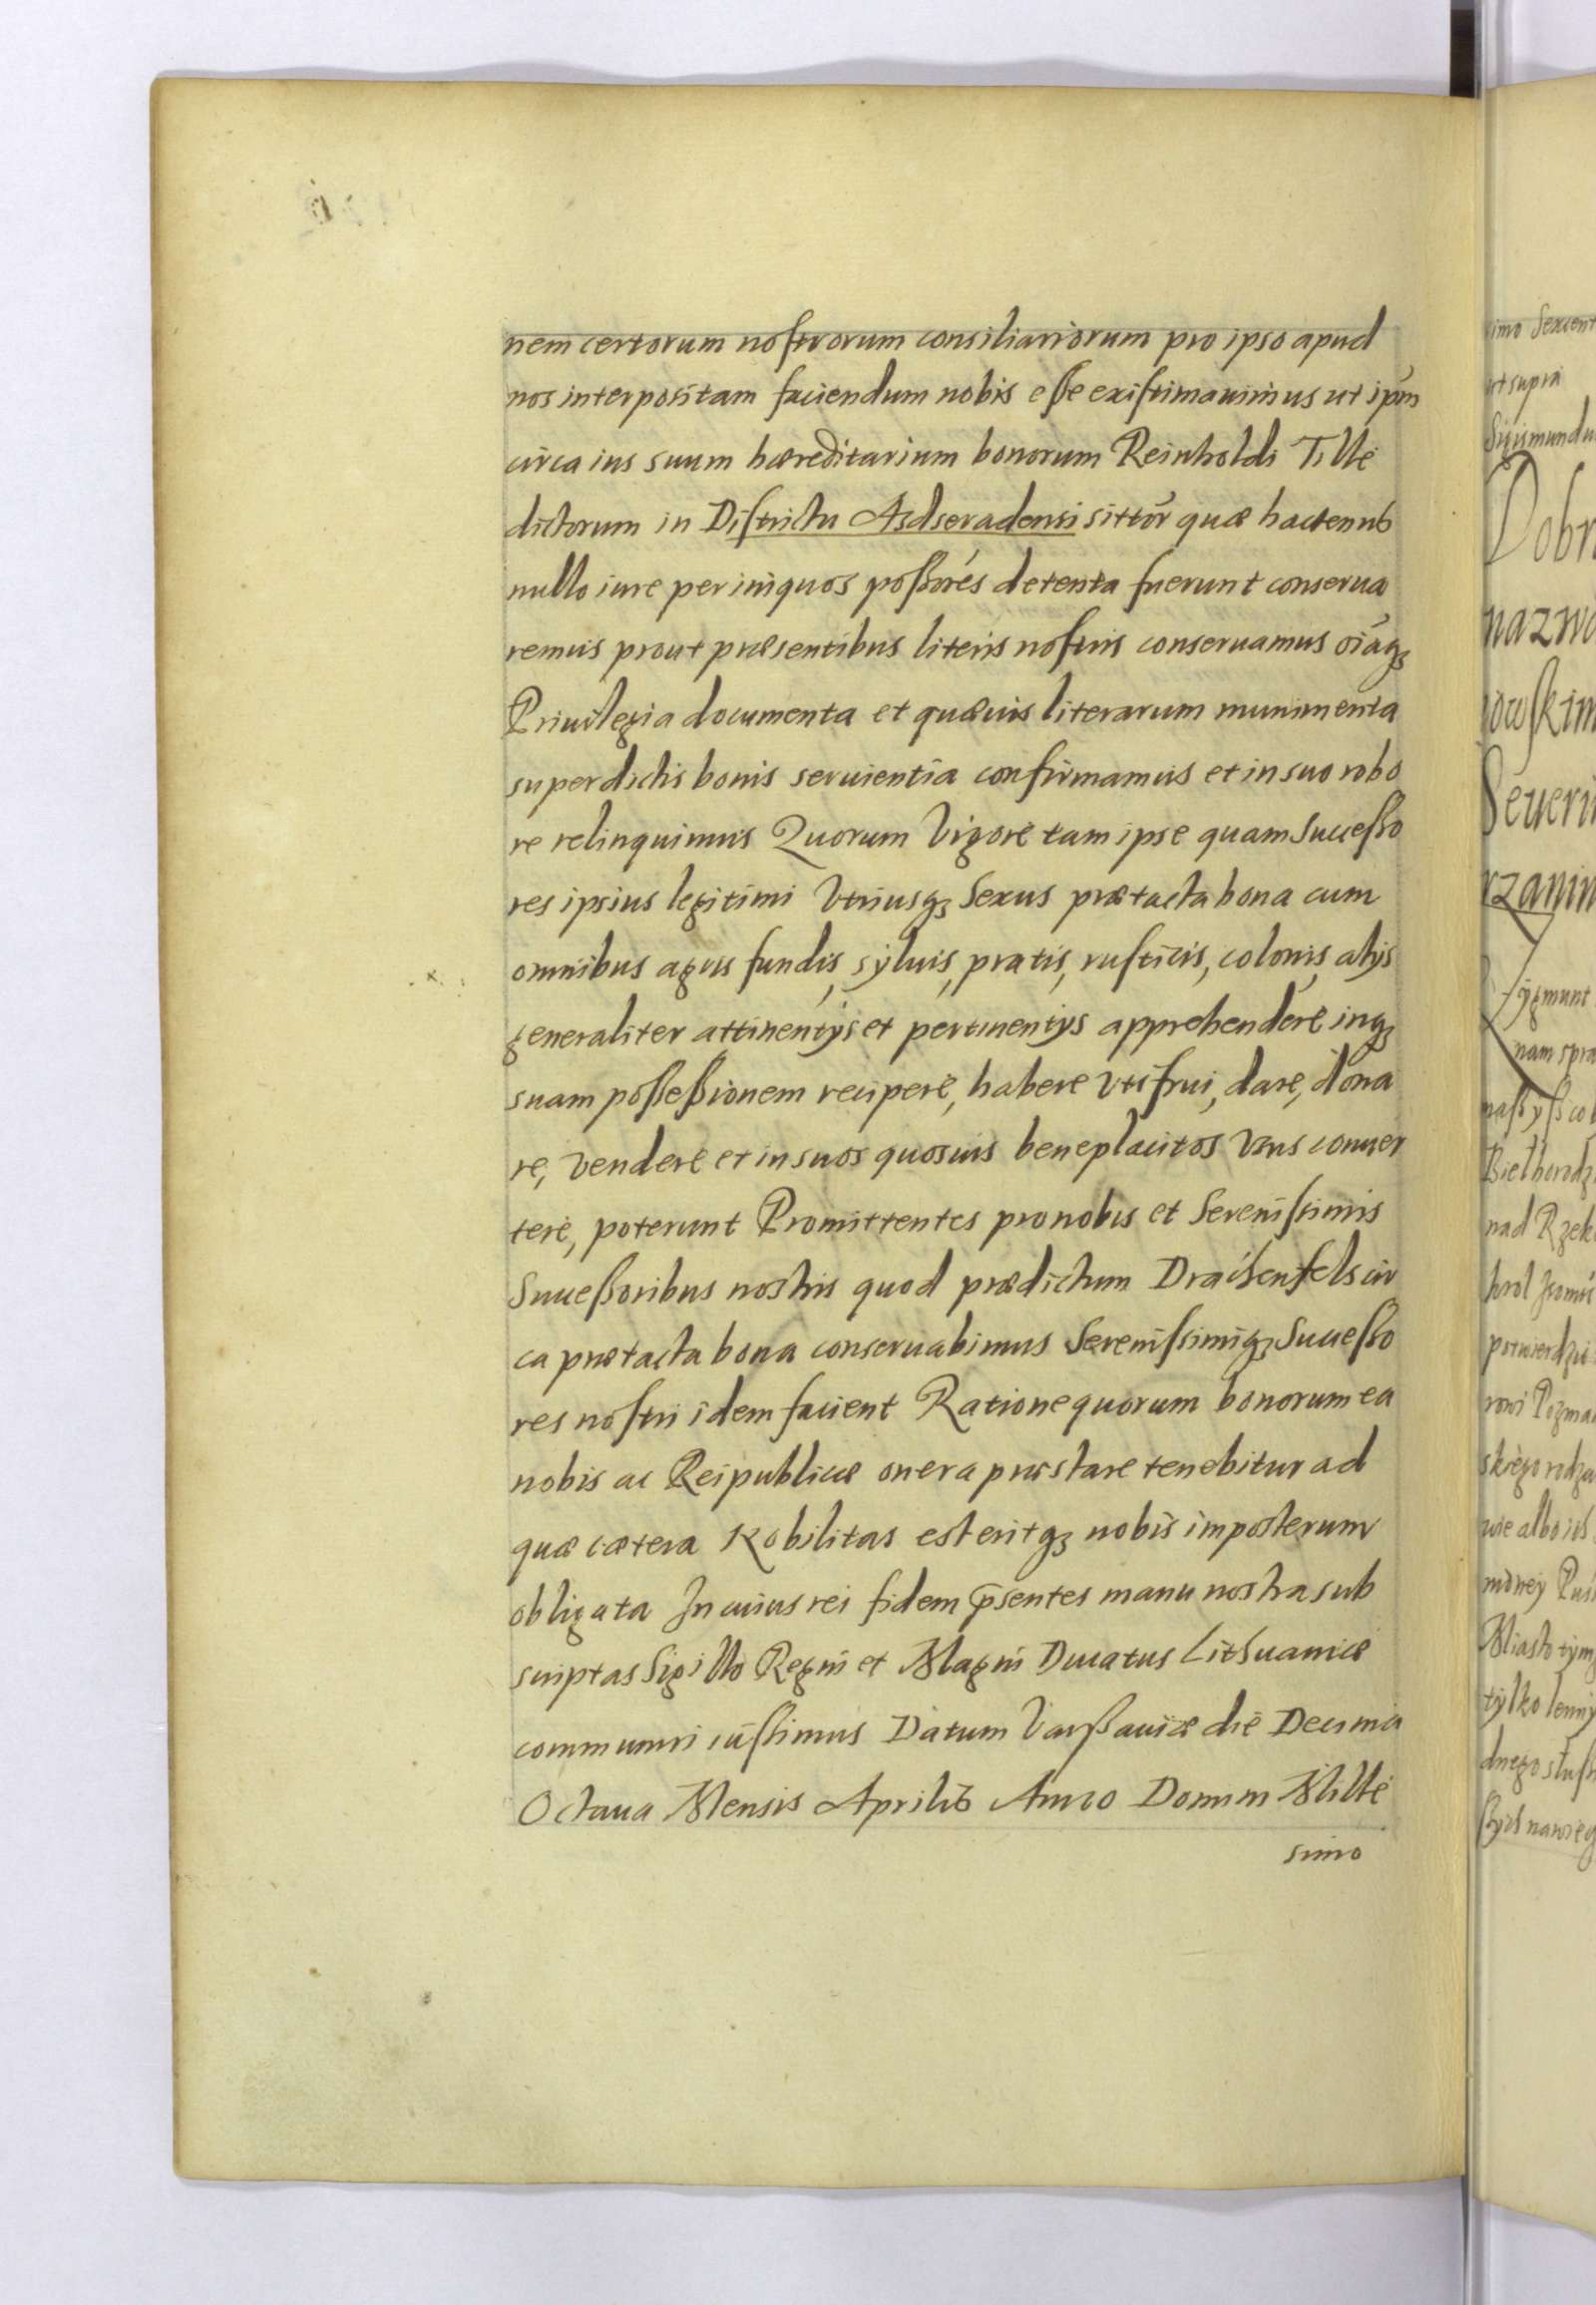 nem certorum nostrorum consiliariorum pro ipso apud
nos interpositam faciendum nobis esse existimauimus ut ipm̄
circa ius suum hæreditarium bonorum Reinholdi Tille
dictorum in Districtu Asdseradensi sittor̄ quæ hactenus
nullo iure per iniquos possōres detenta fuerunt conserua
remus prout præsentibus literis nostris conseruamus oīaqꝫ
Priuilegia documenta et quæuis literarum munimenta
super dictis bonis seruientia confirmamus et in suo robo
re relinquimus Quorum Vigore tam ipse quam Successo
res ipsius legitimi Vtriusqꝫ Sexus prætacta bona cum
omnibus agris fundis, syluis, pratis, rusticis, colonis, alijs
generaliter attinentijs et pertinentijs apprehendere inqꝫ
suam possessionem recipere, habere vtifrui, dare, dona
re, vendere et in suos quosuis beneplacitos Vsus conuer
tere, poterunt Promittentes pro nobis et Serenissimis
Successoribus nostris quod prædictum Drachenfels cir
ca prætacta bona conseruabimus Serenissimiqꝫ Successo
res nostri idem facient Ratione quorum bonorum ea
nobis ac Reipublicæ onera præstare tenebitur ad
quæ cætera Nobilitas est eritqꝫ nobis imposterum
obligata In cuius rei fidem p̄sentes manu nostra sub
scriptas Sigillo Regni et Magni Ducatus Lithuaniæ
communiri iussimus Datum Varssauiæ die Decima
Octaua Mensis Aprilis Anno Domini Mille
simo
simo Sexcent
ut supra
Sigismundu
Dobr
nazwa
Seueri
rzanin
Zygmunt
nam spra
nad Rzek
Miasto tym
tylko lenny